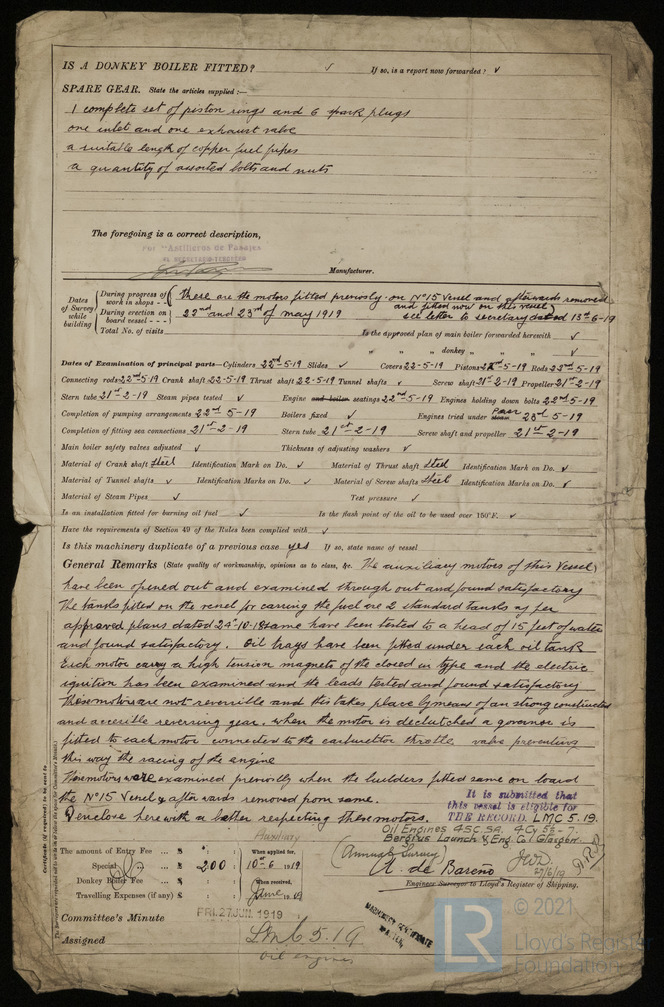 IS A DONKEY BOILER FITTED? ✓ If so, is a report now forwarded? ✓
SPARE GEAR. State the articles supplied:—
1 complete set of piston rings and 6 spark plugs
one inlet and one exhaust valve
a suitable length of copper fuel pipes
a quantity of assorted bolts and nuts
The foregoing is a correct description,
For "Astilleros de Pasajes
Manufacturer.
Dates of Survey while building
During progress of work in shops - - These are the motors fitted previosly on Nº15 Vessel and afterwards removed
and fitted now on this vessel
During erection on board vessel - - 22nd and 23rd of may 1919 see letter to secretary dated 13th 6-19
Total No. of visits Is the approved plan of main boiler forwarded herewith ✓
" " " donkey " " " ✓
Dates of Examination of principal parts—Cylinders 22nd 5-19 Slides ✓ Covers 22-5-19 Pistons 22nd 5-19 Rods 22nd 5-19
Connecting rods 22nd 5-19 Crank shaft 22-5-19 Thrust shaft 22-5-19 Tunnel shafts ✓ Screw shaft 21st 2-19 Propeller 21st 2-19
Stern tube 21st 2-19 Steam pipes tested ✓ Engine and boiler seatings 22nd 5-19 Engines holding down bolts 22nd 5-19
Completion of pumping arrangements 22nd 5-19 Boilers fixed ✓ Engines tried under steam Power 23rd 5-19
Completion of fitting sea connections 21st-2-19 Stern tube 21st-2-19 Screw shaft and propeller 21st-2-19
Main boiler safety valves adjusted ✓ Thickness of adjusting washers ✓
Material of Crank shaft Steel Identification Mark on Do. ✓ Material of Thrust shaft Steel Identification Mark on Do. ✓
Material of Tunnel shafts ✓ Identification Marks on Do. ✓ Material of Screw shafts Steel Identification Marks on Do. ✓
Material of Steam Pipes ✓ Test pressure ✓
Is an installation fitted for burning oil fuel ✓ Is the flash point of the oil to be used over 150°F. ✓
Have the requirements of Section 49 of the Rules been complied with ✓
Is this machinery duplicate of a previous case yes If so, state name of vessel
General Remarks (State quality of workmanship, opinions as to class, &c. The auxiliary motors of this Vessel
have been opened out and examined through out and found satisfactory
The tanks fitted on the vessel for carring the fuel are 2 standard tanks as per
approved plans dated 24th-10-18 same have been tested to a head of 15 feet of water
and found satisfactory. Oil trays have been fitted under each oil tank
Each motor carry a high tension magneto of the closed in type and the electric
ignition has been examined and the leads tested and found satisfactory
These motors are not reversible and this takes place by means of an strong constructed
and accesible reversing gear. when the motor is declutched a governor is
fitted to each motor connected to the carburettor throttle valve preventing
this way the racing of the engine
These motors were examined previosly when the builders fitted same on board
the Nº15 Vessel & afterwards removed from same.
I enclose herewith a letter respecting these motors.
It is submitted that
this vessel is eligible for
THE RECORD. LMC 5.19.
Auxiliary
Oil Engines 4SC.SA. 4Cy
Bergius Launch & Eng. Co. Glasgow.
The amount of Entry Fee £ : : When applied for,
Special £ 200 : 10-6-1919
Donkey Boiler Fee £ : : When received,
Travelling Expenses (if any) £ : : June 1919
(Annual Survey)
A. de Bareño
27/6/19
Engineer Surveyor to Lloyd's Register of Shipping.
Committee's Minute FRI. 27 JUN. 1919
Assigned LMC 5.19
oil engines
MACHINERY CERTIFICATE
WRITTEN.
Certificate (if required) to be sent to
LR
© 2021
Lloyd's Register
Foundation